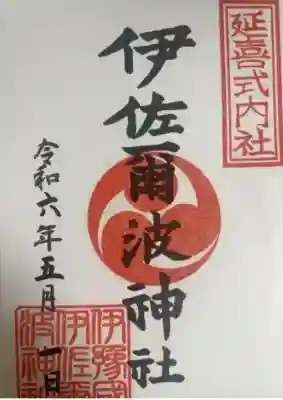 延喜式内社
伊佐爾波神社
令和六年五月一日
伊豫国
伊佐爾
波神社